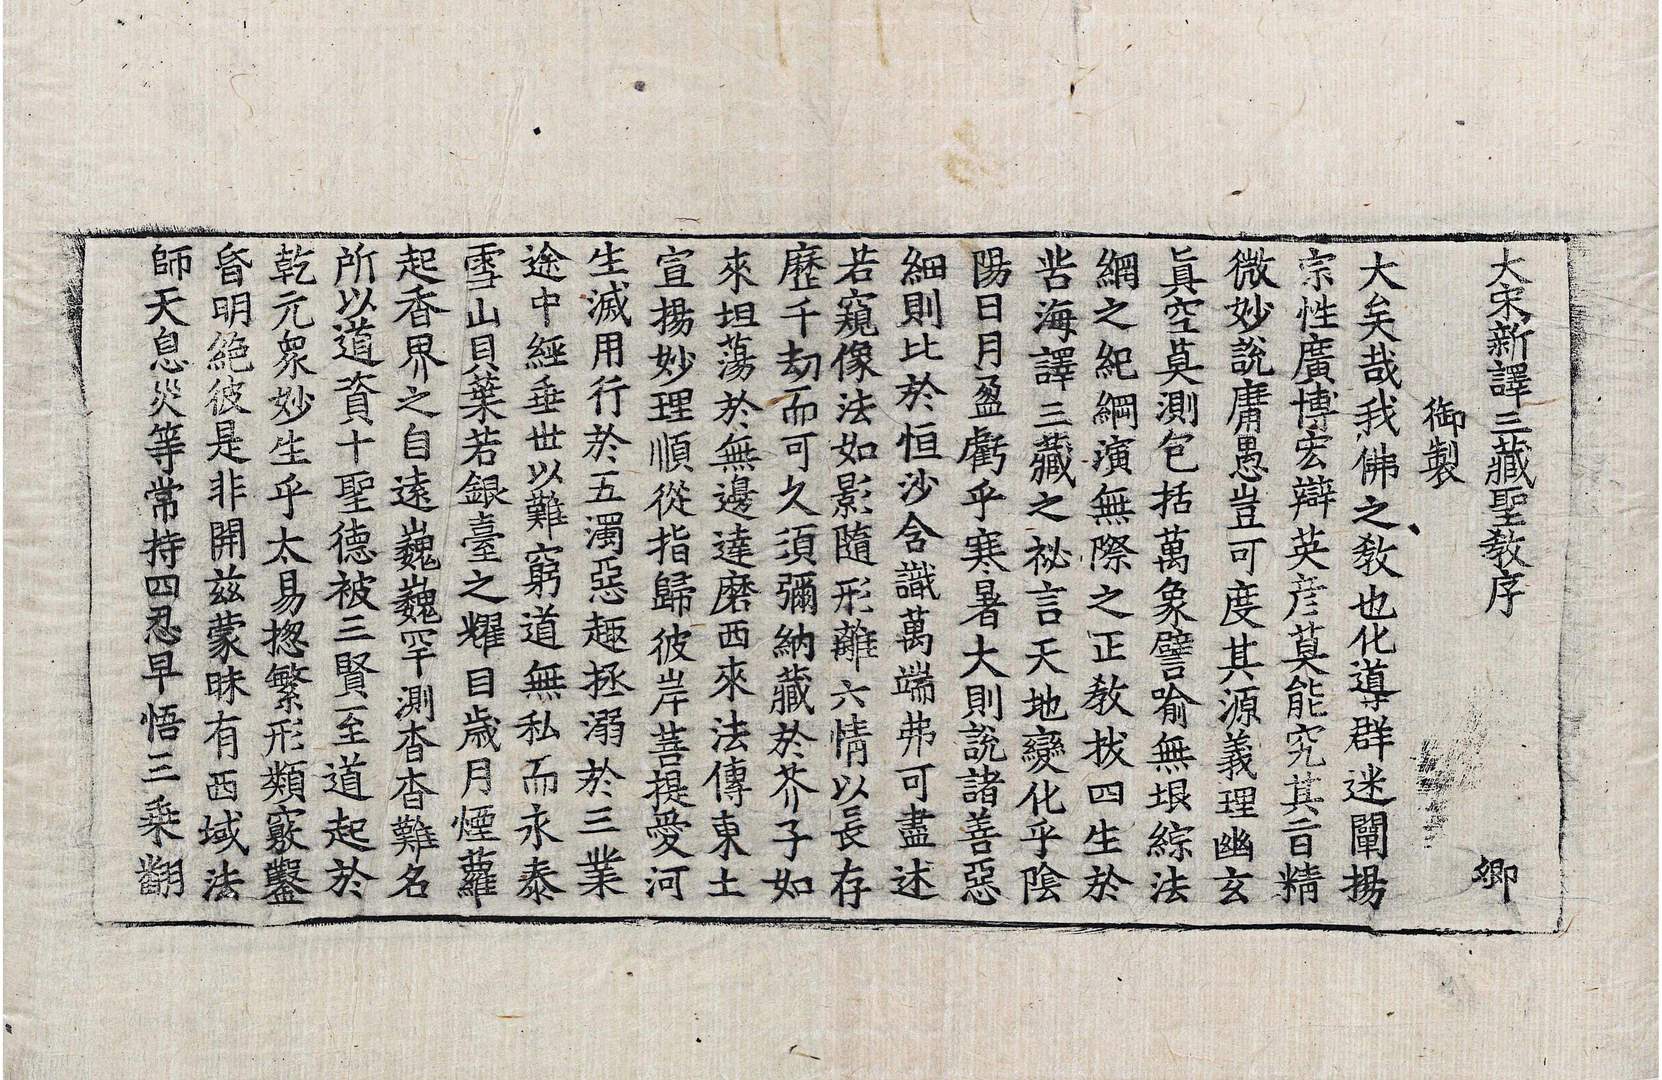 大宋新譯三藏聖敎序 卿
御製
大矣哉我佛之敎也化導群迷闡揚
宗性廣博宏辯英彦莫能究其旨精
微妙說庸愚豈可度其源義理幽玄
眞空莫測包括萬象譬喻無垠綜法
網之紀綱演無際之正敎拔四生於
苦海譯三藏之祕言天地變化乎陰
陽日月盈虧乎寒暑大則說諸善惡
細則比於恒沙含識萬端弗可盡述
若窺像法如影隨形離六情以長存
歷千劫而可久須彌納藏於芥子如
來坦蕩於無邊達磨西來法傳東土
宣揚妙理順從指歸彼岸菩提愛河
生滅用行於五濁惡趣拯溺於三業
途中經垂世以難窮道無私而永泰
雪山貝葉若銀臺之耀目歲月煙蘿
起香界之自遠巍巍罕測杳杳難名
所以道資十聖德被三賢至道起於
乾元衆妙生乎太易揔繁形類竅鑿
昏明絶彼是非開茲蒙昧有西域法
師天息災等常持四忍早悟三乘翻